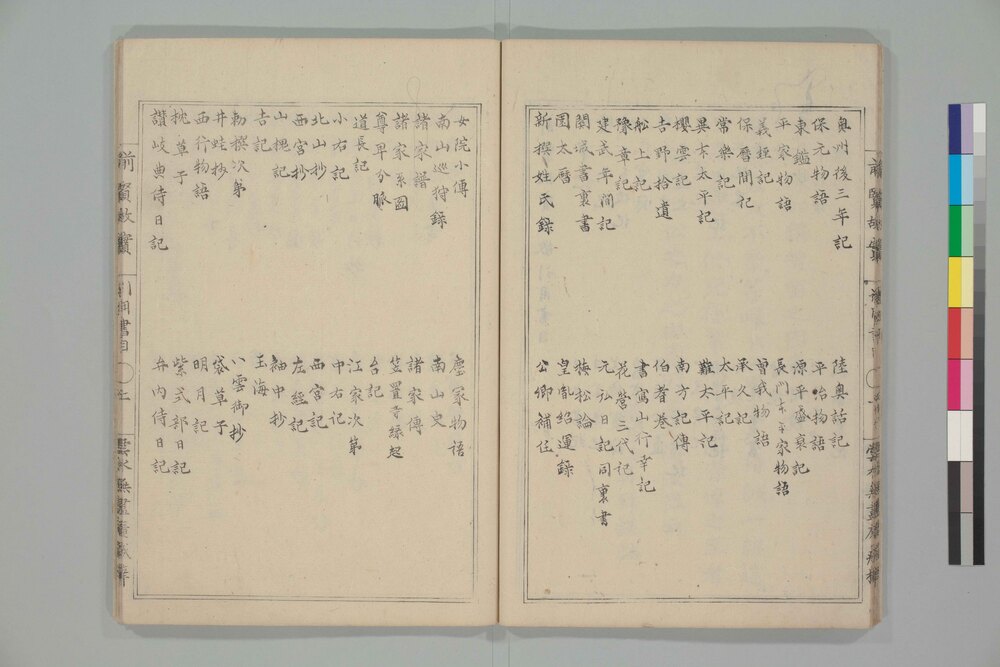 奥州後三年記
陸奥話記
保元物語
平治物語
東鑑
源平盛衰記
平家物語
長門本平家物語
義経記
曽我物語
保暦間記
承久記
常樂記
太平記
異本太平記
難太平記
櫻雲記
南方記傳
吉野拾遺
伯耆巻
舩上記
書寫山行幸記
豫章記
花営三代記
建武年間記
元弘日記同裏書
関城書裏書
梅松論
園太暦
皇胤紹運録
新撰姓氏録
公卿補任
女院小傳
塵冢物語
南山巡狩録
南山史
諸家譜
諸家傳
諸家系圖
笠置寺縁起
尊卑分脈
台記
道長記
江家次第
小右記
中右記
北山抄
西宮記
西宮抄
左經記
山槐記
袖中抄
吉記
玉海
勅撰次第
八雲御抄
井蛙抄
袋草子
西行物語
明月記
枕草子
紫式部日記
讃岐典侍日記
弁内侍日記
前賢故實
引用書目